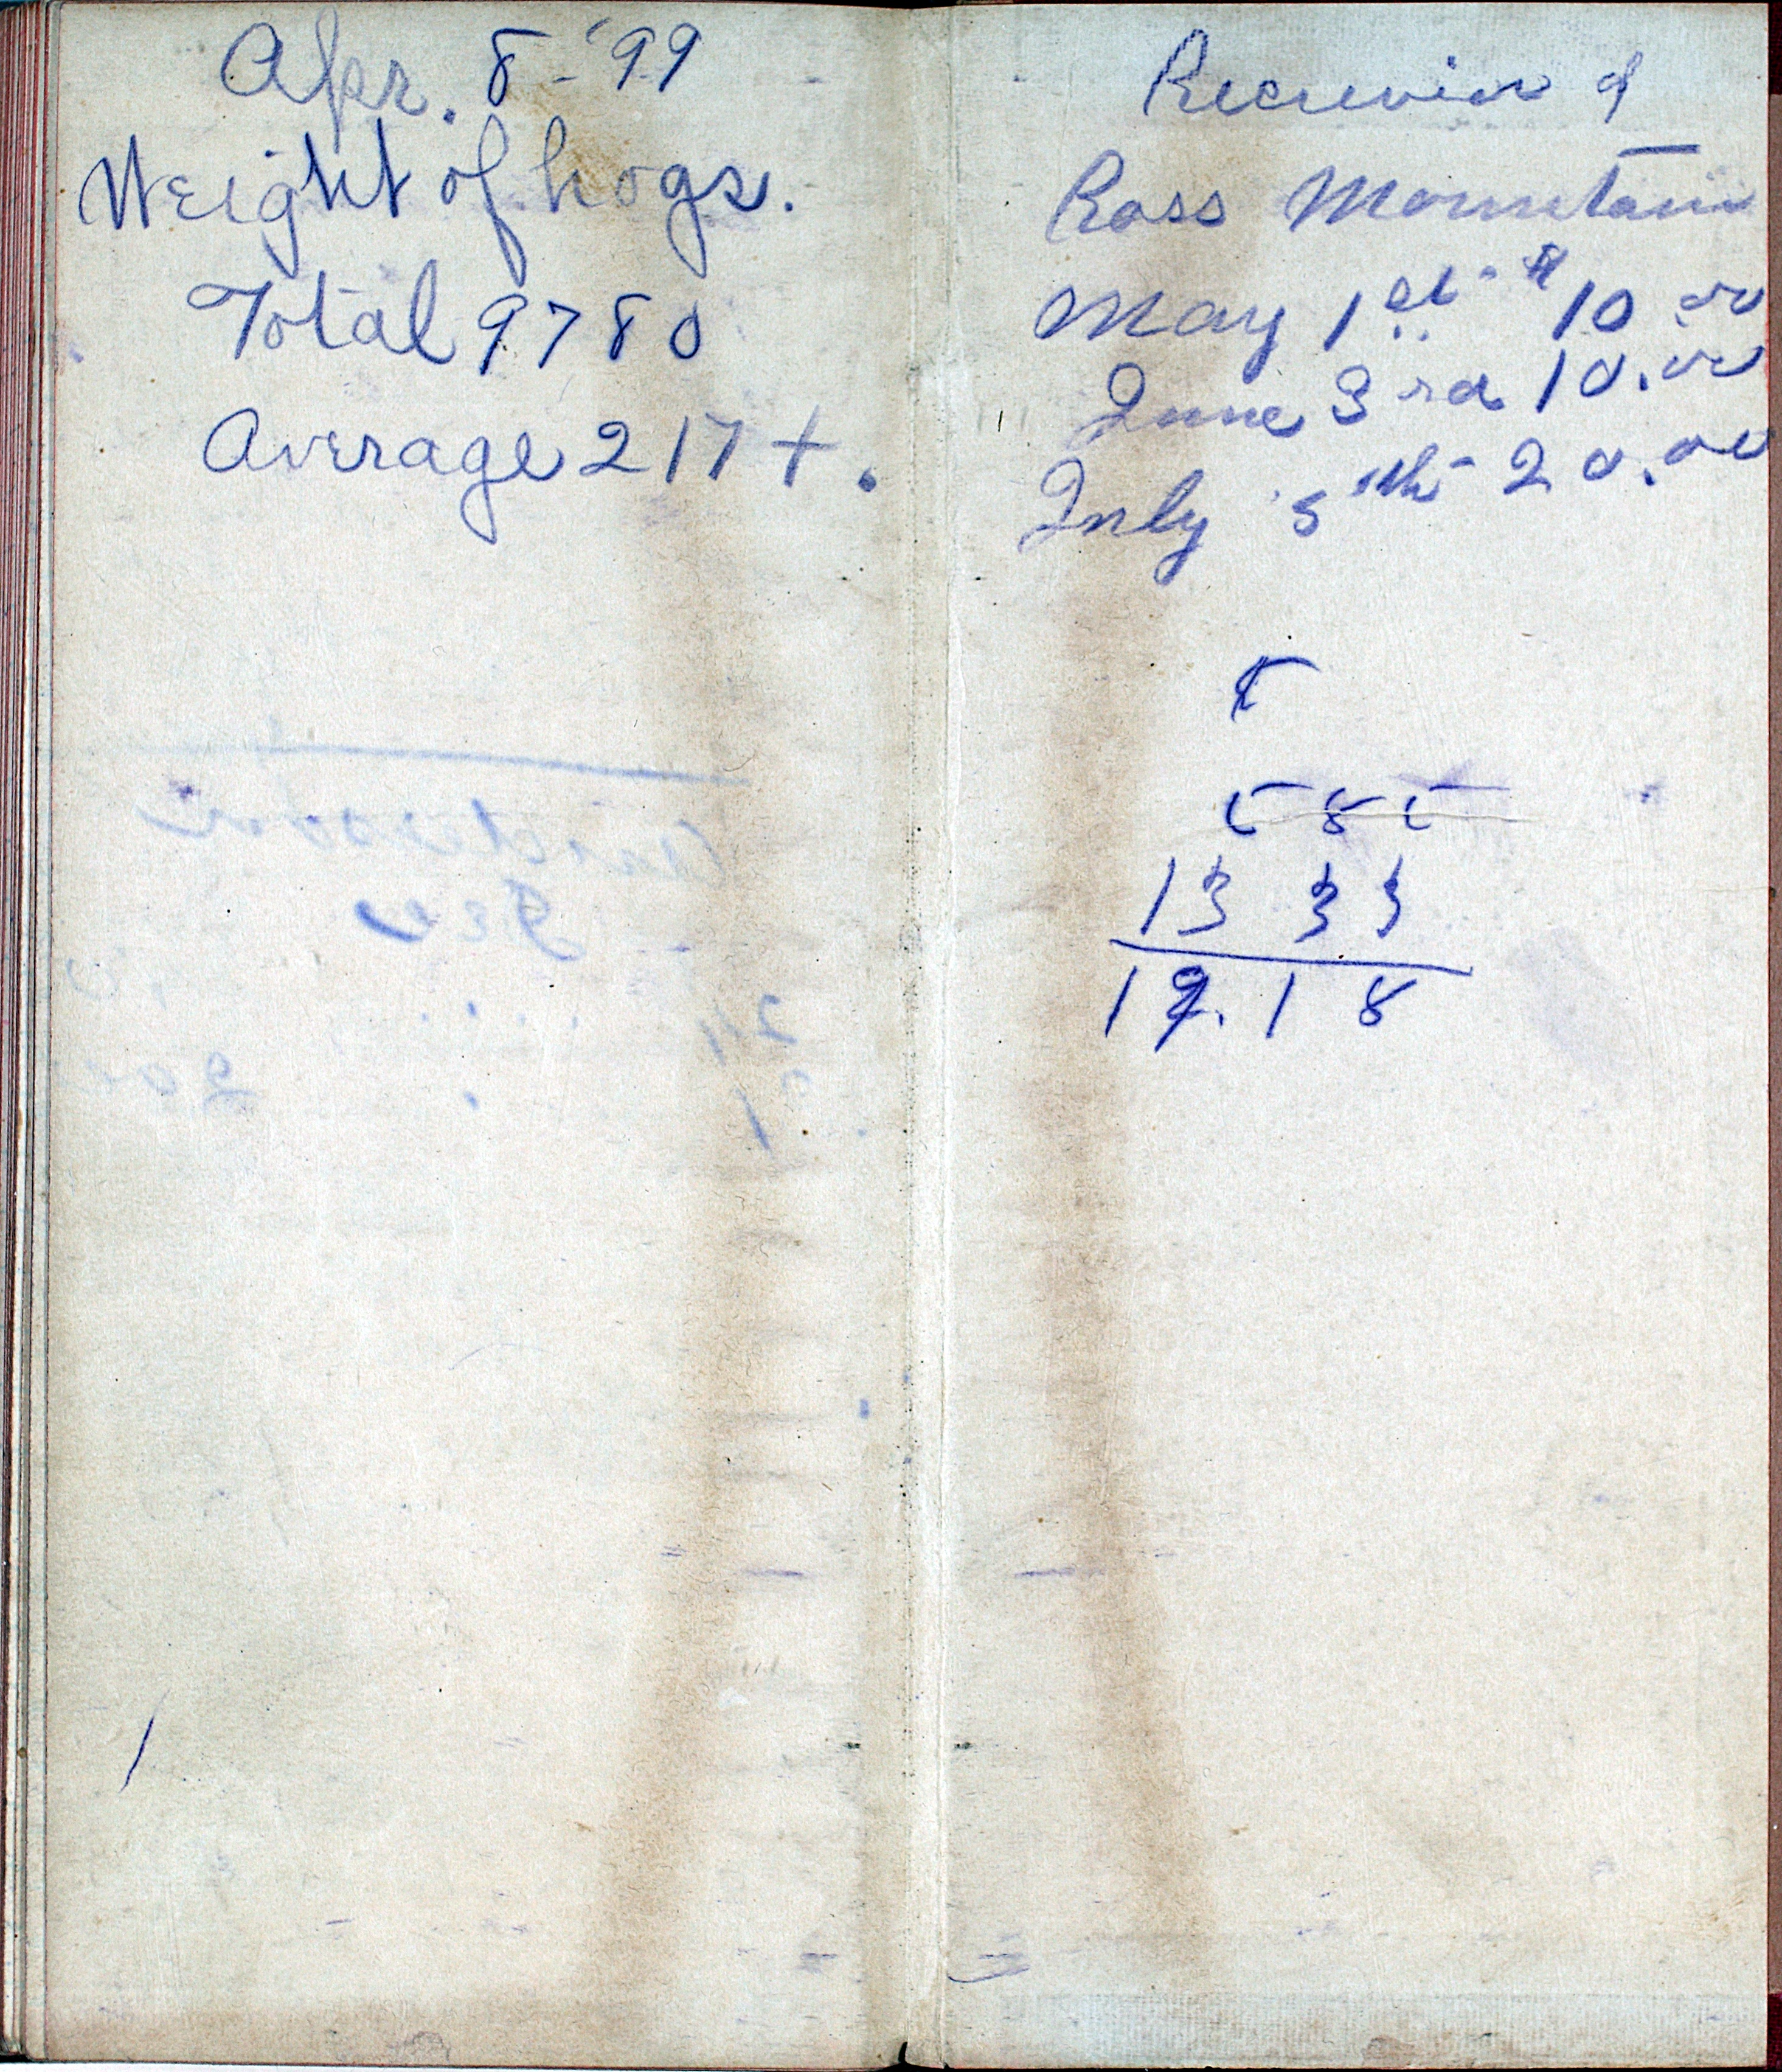 Apr. 8 - '99
Weight of hogs.
Total 9780
Average 217 +.
Recievied of
Ross Mountain
May 1st - $10.00
June 3rd 10.00
July 5th - 20.00
5
5 8 5
13 33
19.18